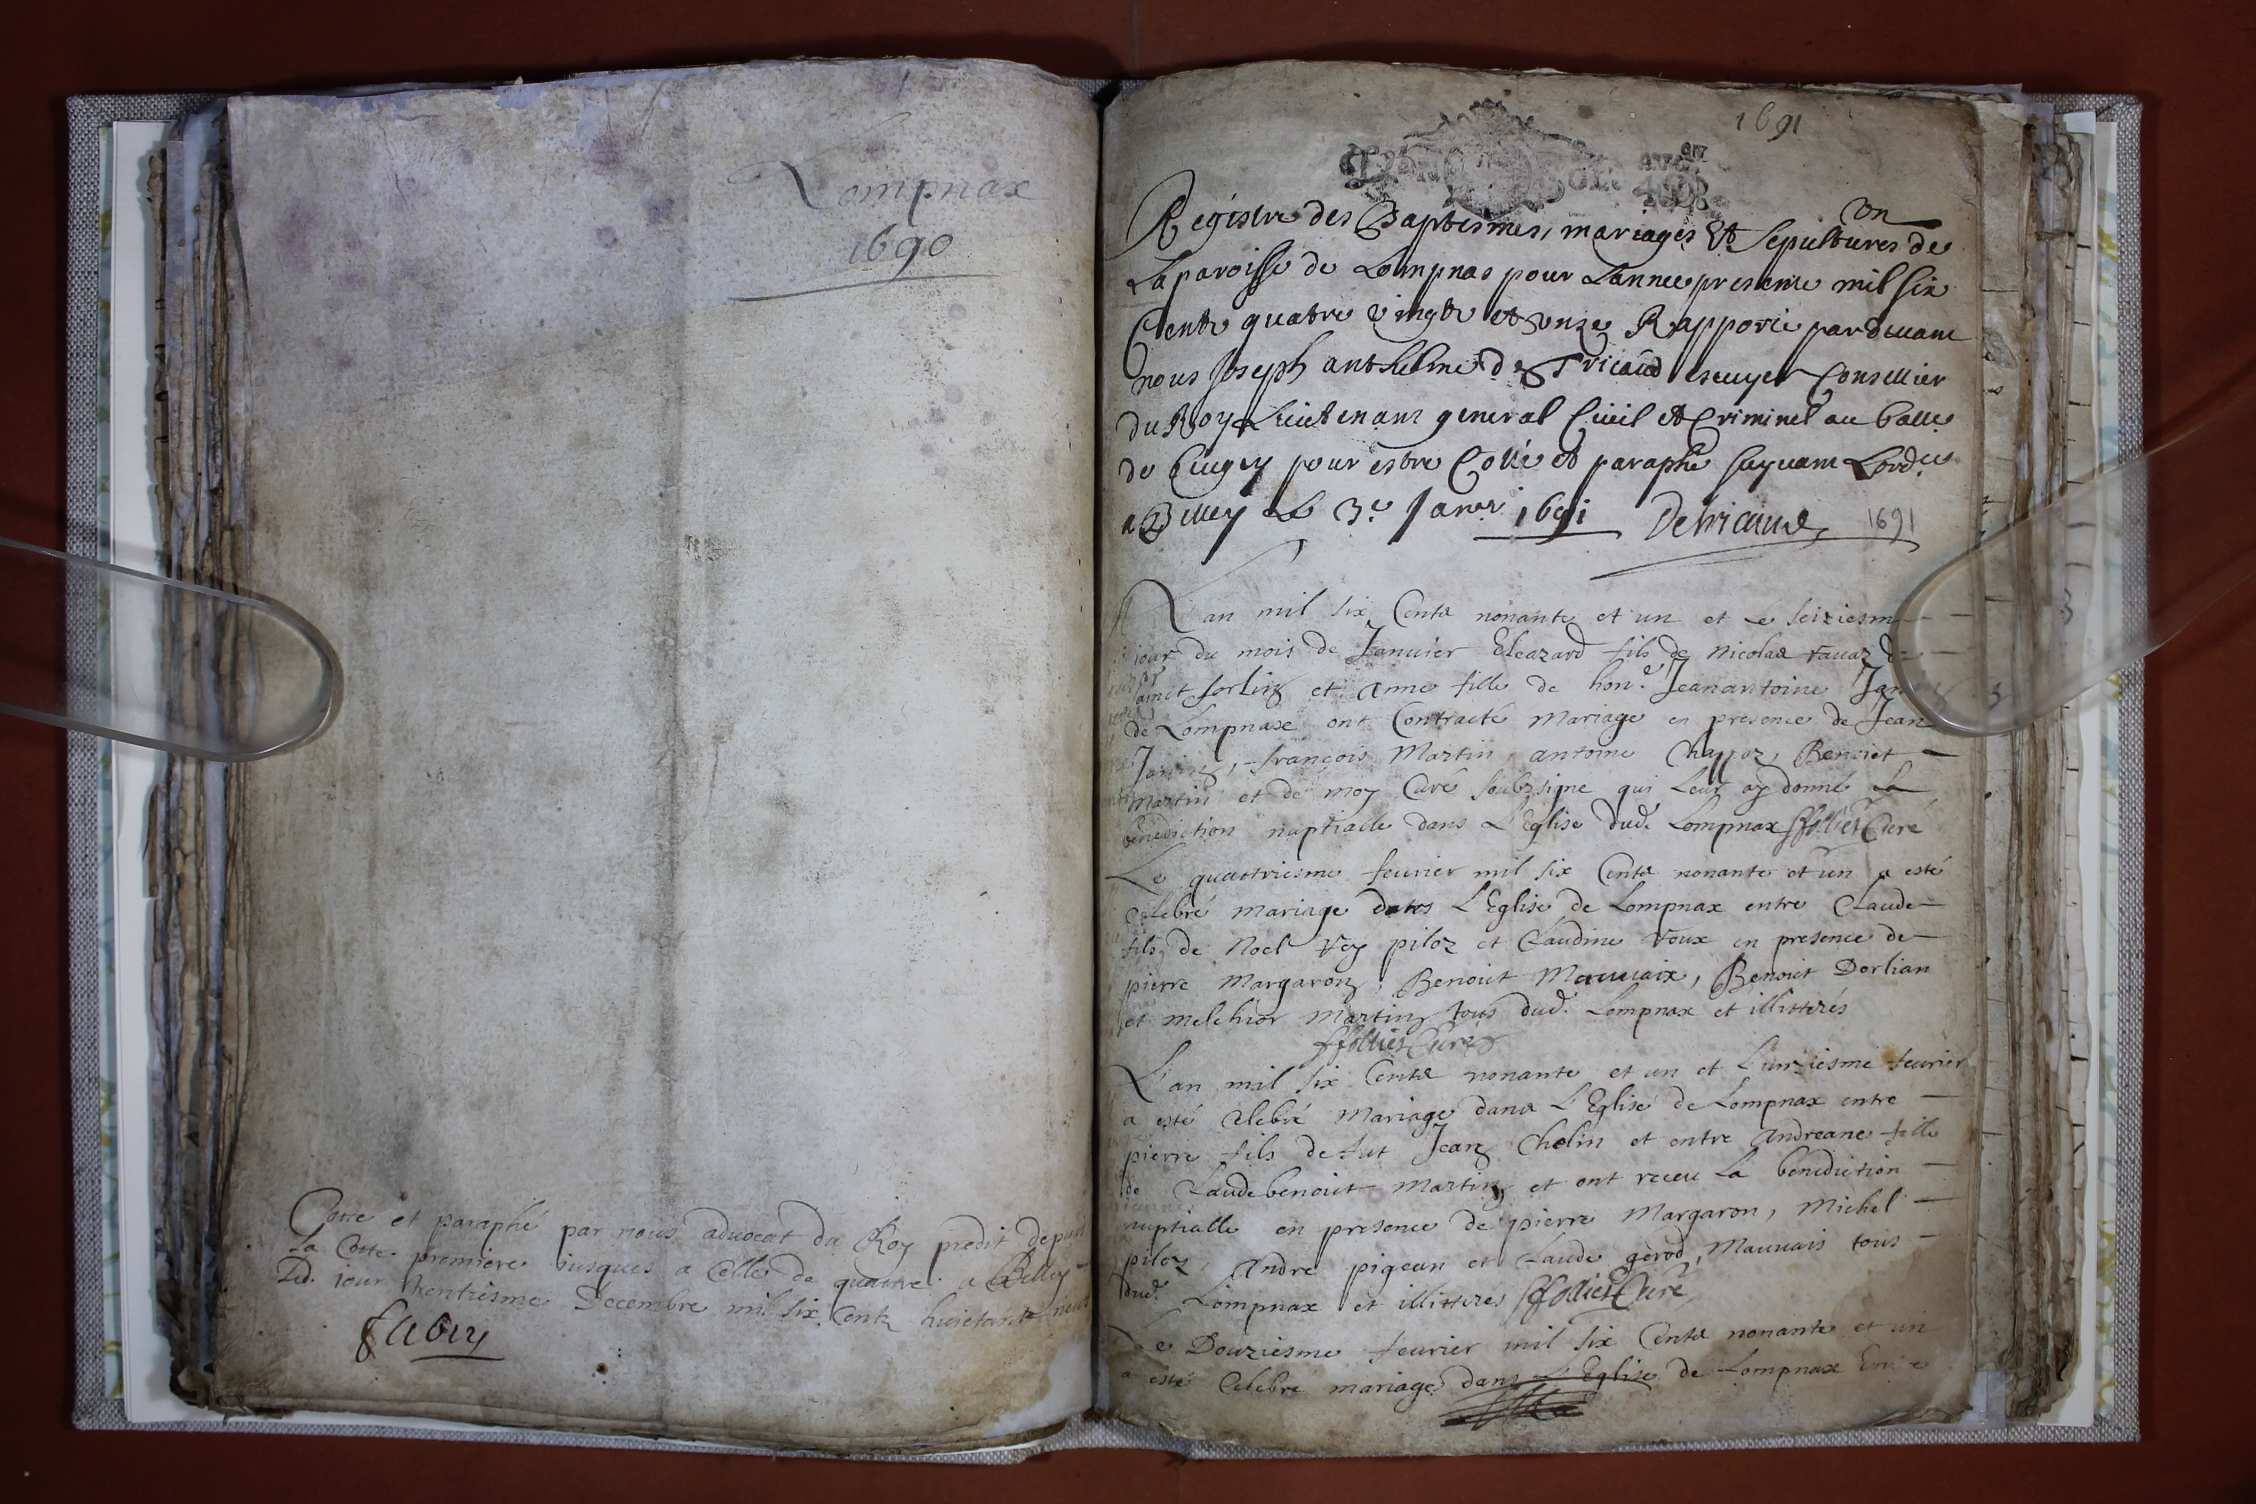 Lompnax
1690
Cotté et paraphé par nous advocat du Roy predit depuis
la Cotte premiere jusques a Celle de quatre a Belley
Ld. jour trentiesme Decembre mil six Centz huictante neuf
fabry
1691
un
Registre des Baptesmes, mariages Et Sepultures de
La paroisse de Lompnas pour Lannee presente mil six
Cents quatre vingts et onze Rapporté pardevant
nous Joseph anthelme de Tricaud escuyer Conseiller
du Roy Lieutenant general Civil et Criminel au balle
de Bugey pour estre Cotté et paraphé suyvant Lord.ce
a Belley Le 3e Janvr 1691 Detricaud
1691
L'an mil six Cents nonante et un et le seiziesme
jour du mois de Janvier Eleazard fils de Nicolas ravaz de
saint sorlin et Anne fille de hon.e Jeanantoine
de Lompnax ont Contracté Mariage en presence de Jean
Janin, françois Martin, antoine Chappoz, Benoiet
Martin et de moy Curé soubzsigné qui Leur ay donné La
benediction nuptialle dans L'Eglise dud. Lompnax ffolliet Curé
Le quatriesme feurier mil six Cents nonante et un a esté
Celebré mariage dans L'Eglise de Lompnax entre Claude
fils de Noel Rey piloz et Claudine Roux en presence de
pierre Margaron, Benoict Mauvaix, Benoict Dorlian
et Melchior Martin tous dud. Lompnax et illitterés
ffolliet Curé
L'an mil six Cents nonante et un et L'unziesme feurier
a esté Celebré Mariage dans L'Eglise de Lompnax entre
pierre fils de fut Jean Chelin et entre Andreane fille
de Claudebenoict Martin et ont receu La benediction
nuptialle en presence de pierre Margaron, Michel
piloz, Andre pigeun et Claude gerod, Mauvais tous
dud. Lompnax et illitterés ffolliet Curé
Le Douziesme feurier mil six Cents nonante et un
a esté Celebré mariage dans L'Eglise de Lompnax Entre